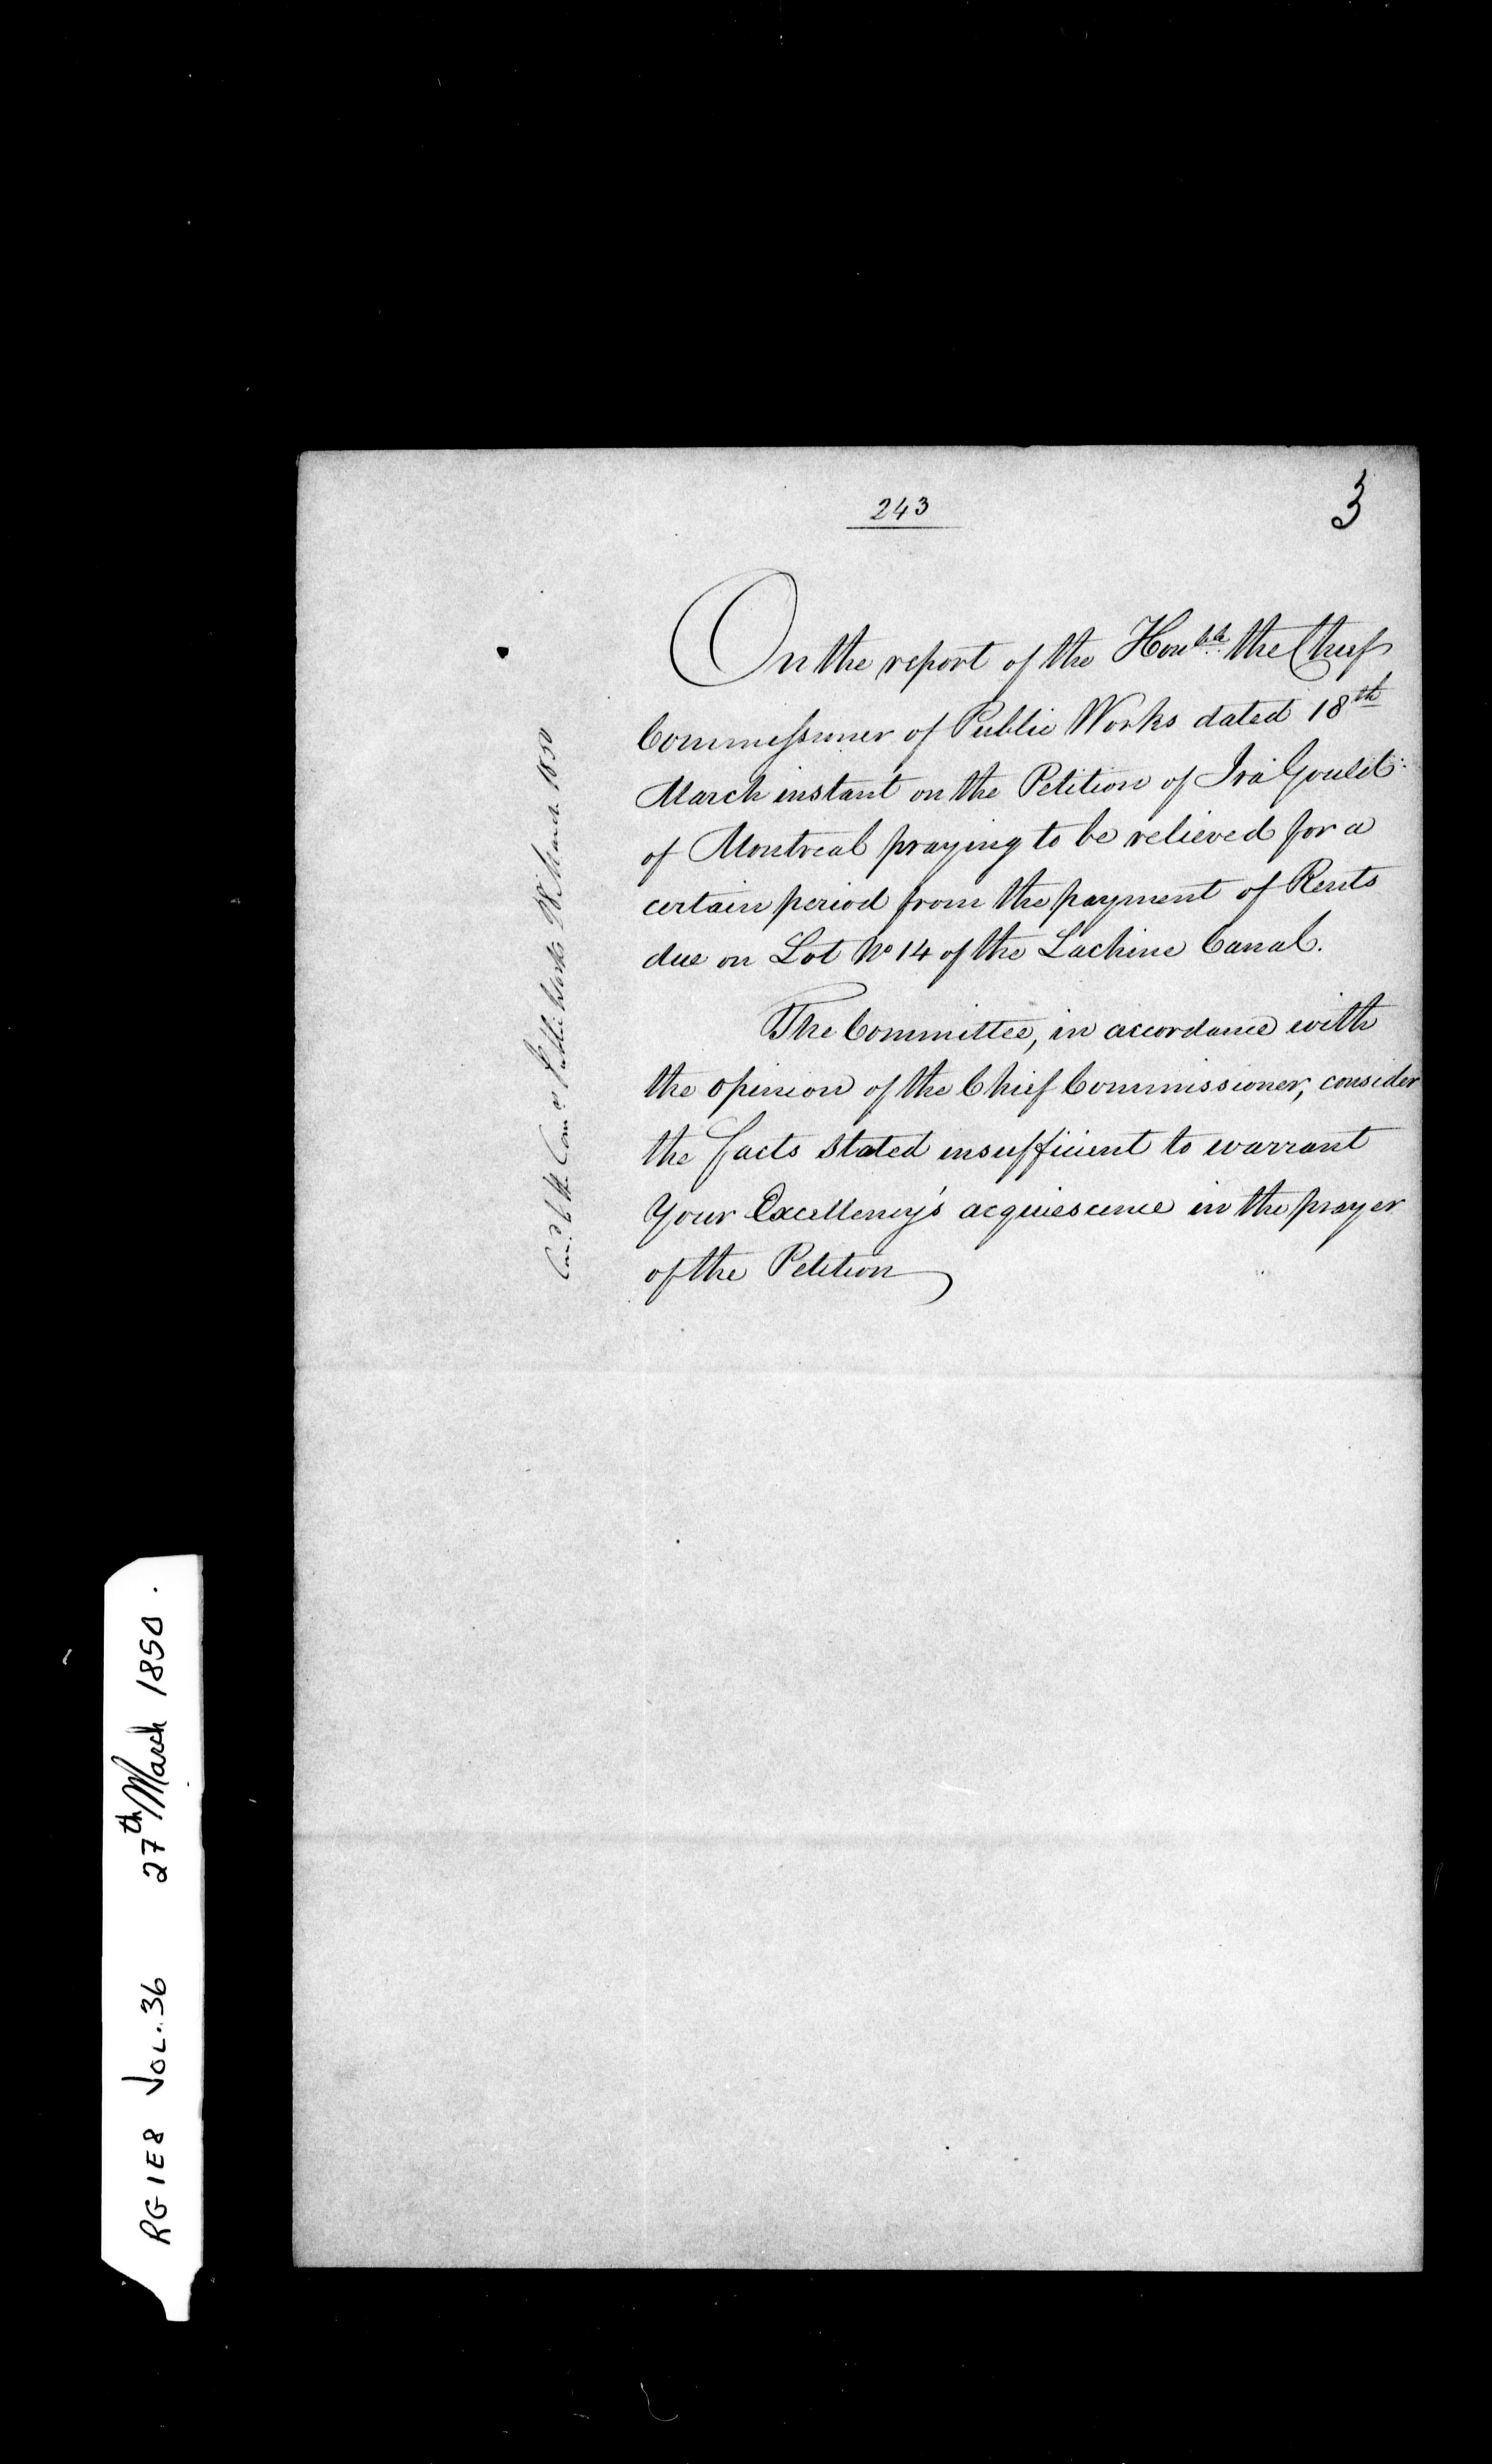 243
3
On the report of the Honble. the Chief
Commissioner of Public Works dated 18th
March instant on the Petition of Ira Gould
of Montreal praying to be relieved for a
certain period from the payment of Rents
due on Lot No 14 of the Lachine Canal.
The Committee, in accordance with
the opinion of the Chief Commissioner, consider
the facts stated insufficient to warrant
Your Excellency's acquiescence in the prayer
of the Petition
Public Works March 1850
RG 1 E 8 VOL. 36 27th March 1850.